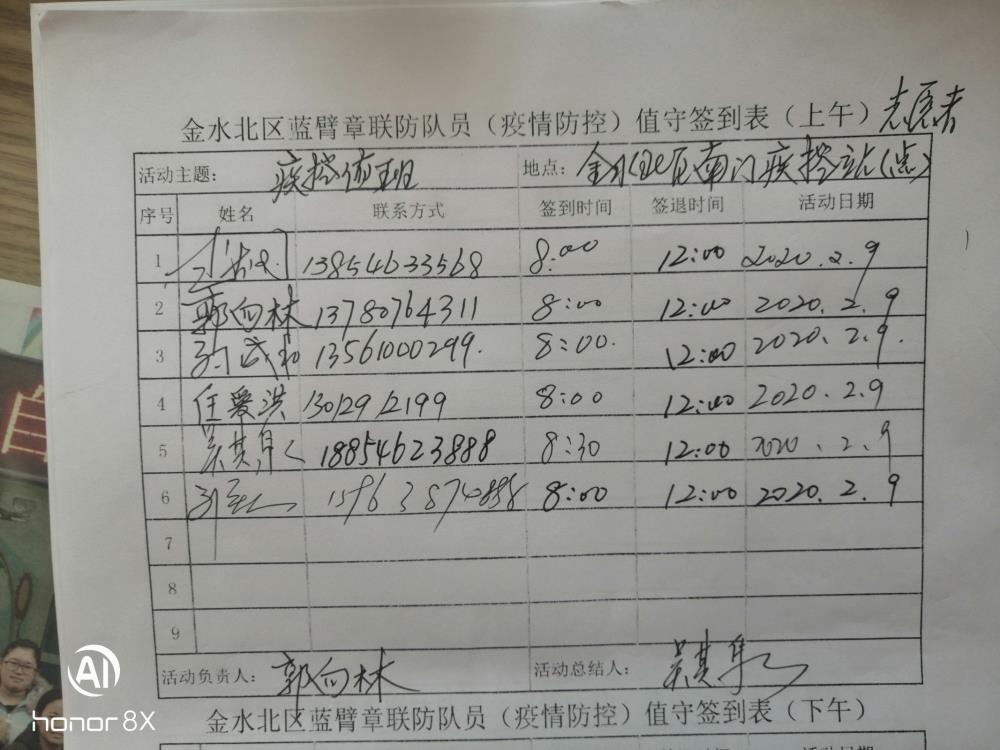 金水北区蓝臂章联防队员（疫情防控）值守签到表（上午）志愿者
活动主题： 疾控值班 地点： 金水北区南门疾控站(点)
序号 姓名 联系方式 签到时间 签退时间 活动日期
1 13854633568 8:00 12:00 2020.2.9
2 郭向林 13780764311 8:00 12:00 2020.2.9
3 13561000299. 8:00. 12:00 2020.2.9.
4 任爱洪 13012912199 8:00 12:00 2020.2.9
5 吴其身 18854623888 8:30 12:00 2020.2.9
6 8:00 12:00 2020.2.9
7
8
9
活动负责人： 郭向林 活动总结人：
金水北区蓝臂章联防队员（疫情防控）值守签到表（下午）
AI
honor 8X